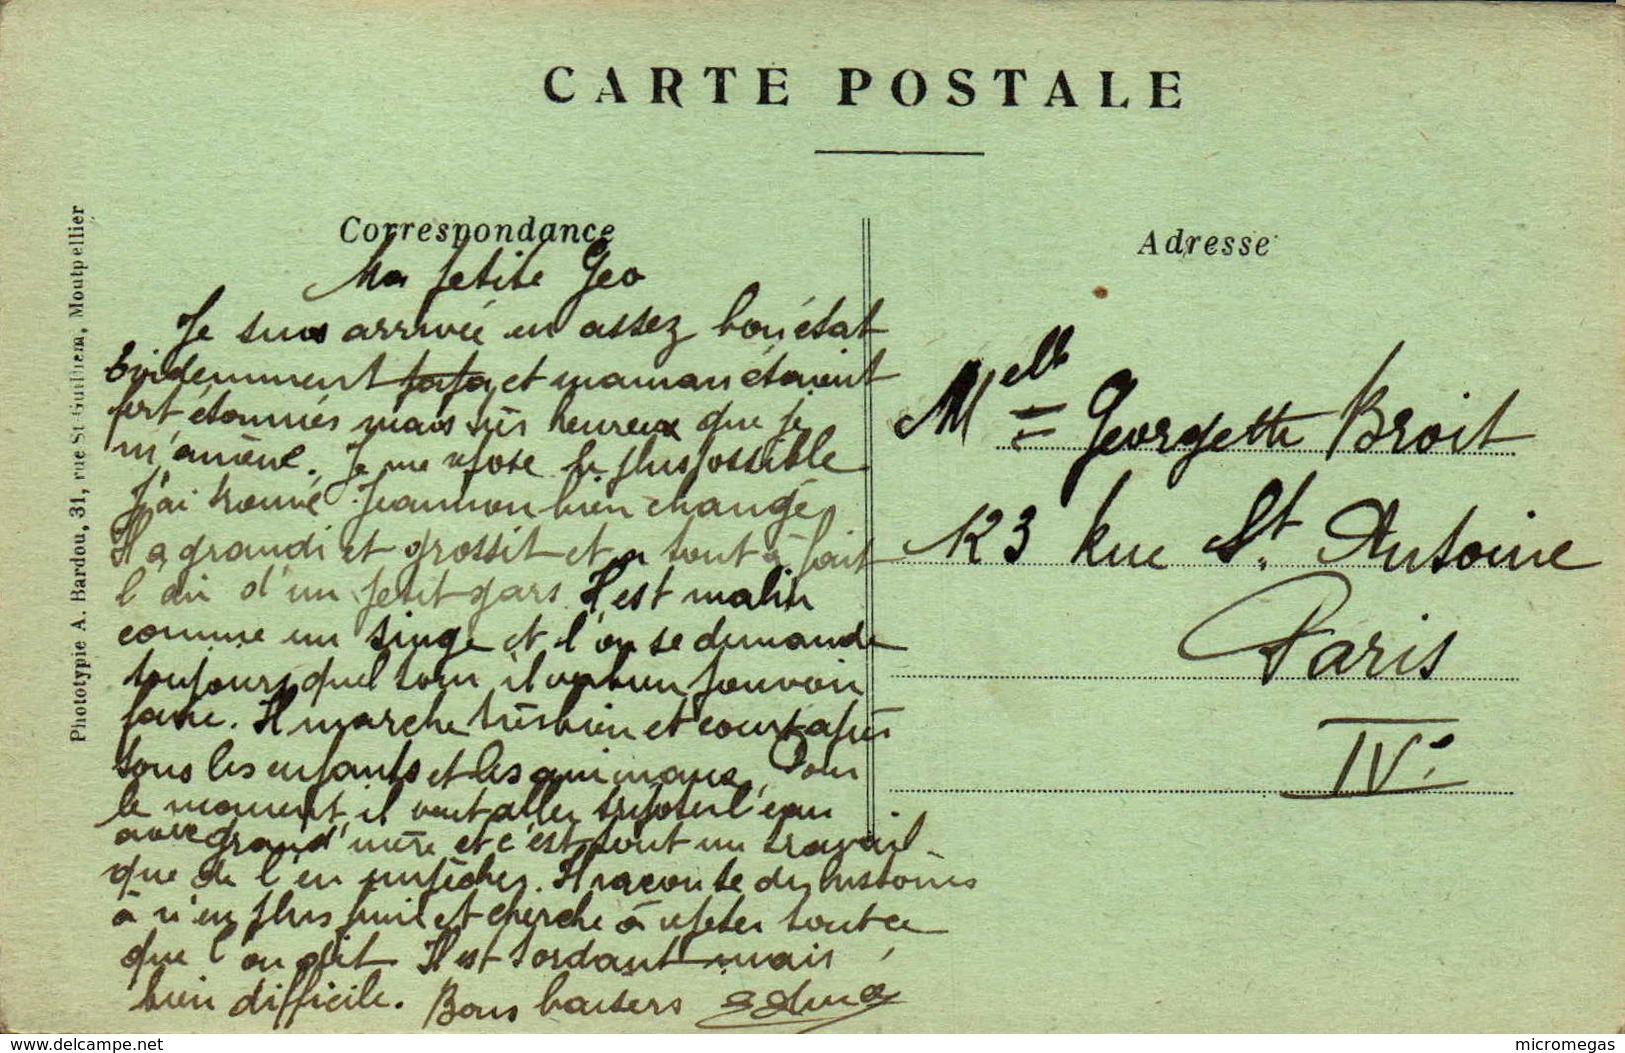 CARTE POSTALE
Correspondance
Adresse
Phototypie A. Bardou, 31, rue St-Guilhem, Montpellier
Ma petite Geo
Je suis arrivée en assez bon état
Evidemment papa et maman étaient
fort étonnés mais très heureux que je
m'amène. Je me repose le plus possible
J'ai trouvé Jeannou bien changé,
Il a grandi et grossit et a tout à fait
l'air d'un petit gars. Il est malin
comme un singe et l'on se demande
toujours quel tour il va bien pouvoir
faire. Il marche très bien et court après
tous les enfants et les animaux. Pour
le moment il veut aller tr l'eau
avec grand'mère et c'est tout un travail
que de l'en empêcher. Il raconte des histoires
à n'en plus finir et cherche à répéter tout ce
que l'on dit. Il est tordant mais
bien difficile. Bons baisers Edma
Melle Georgette Broit
123 Rue St. Antoine
Paris
IVe
delcampe.net
micromegas